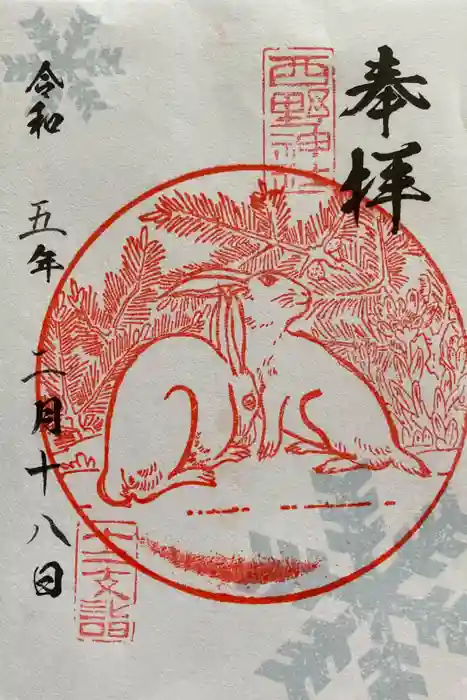 奉拝
西野神社
令和五年二月十八日
十二支詣